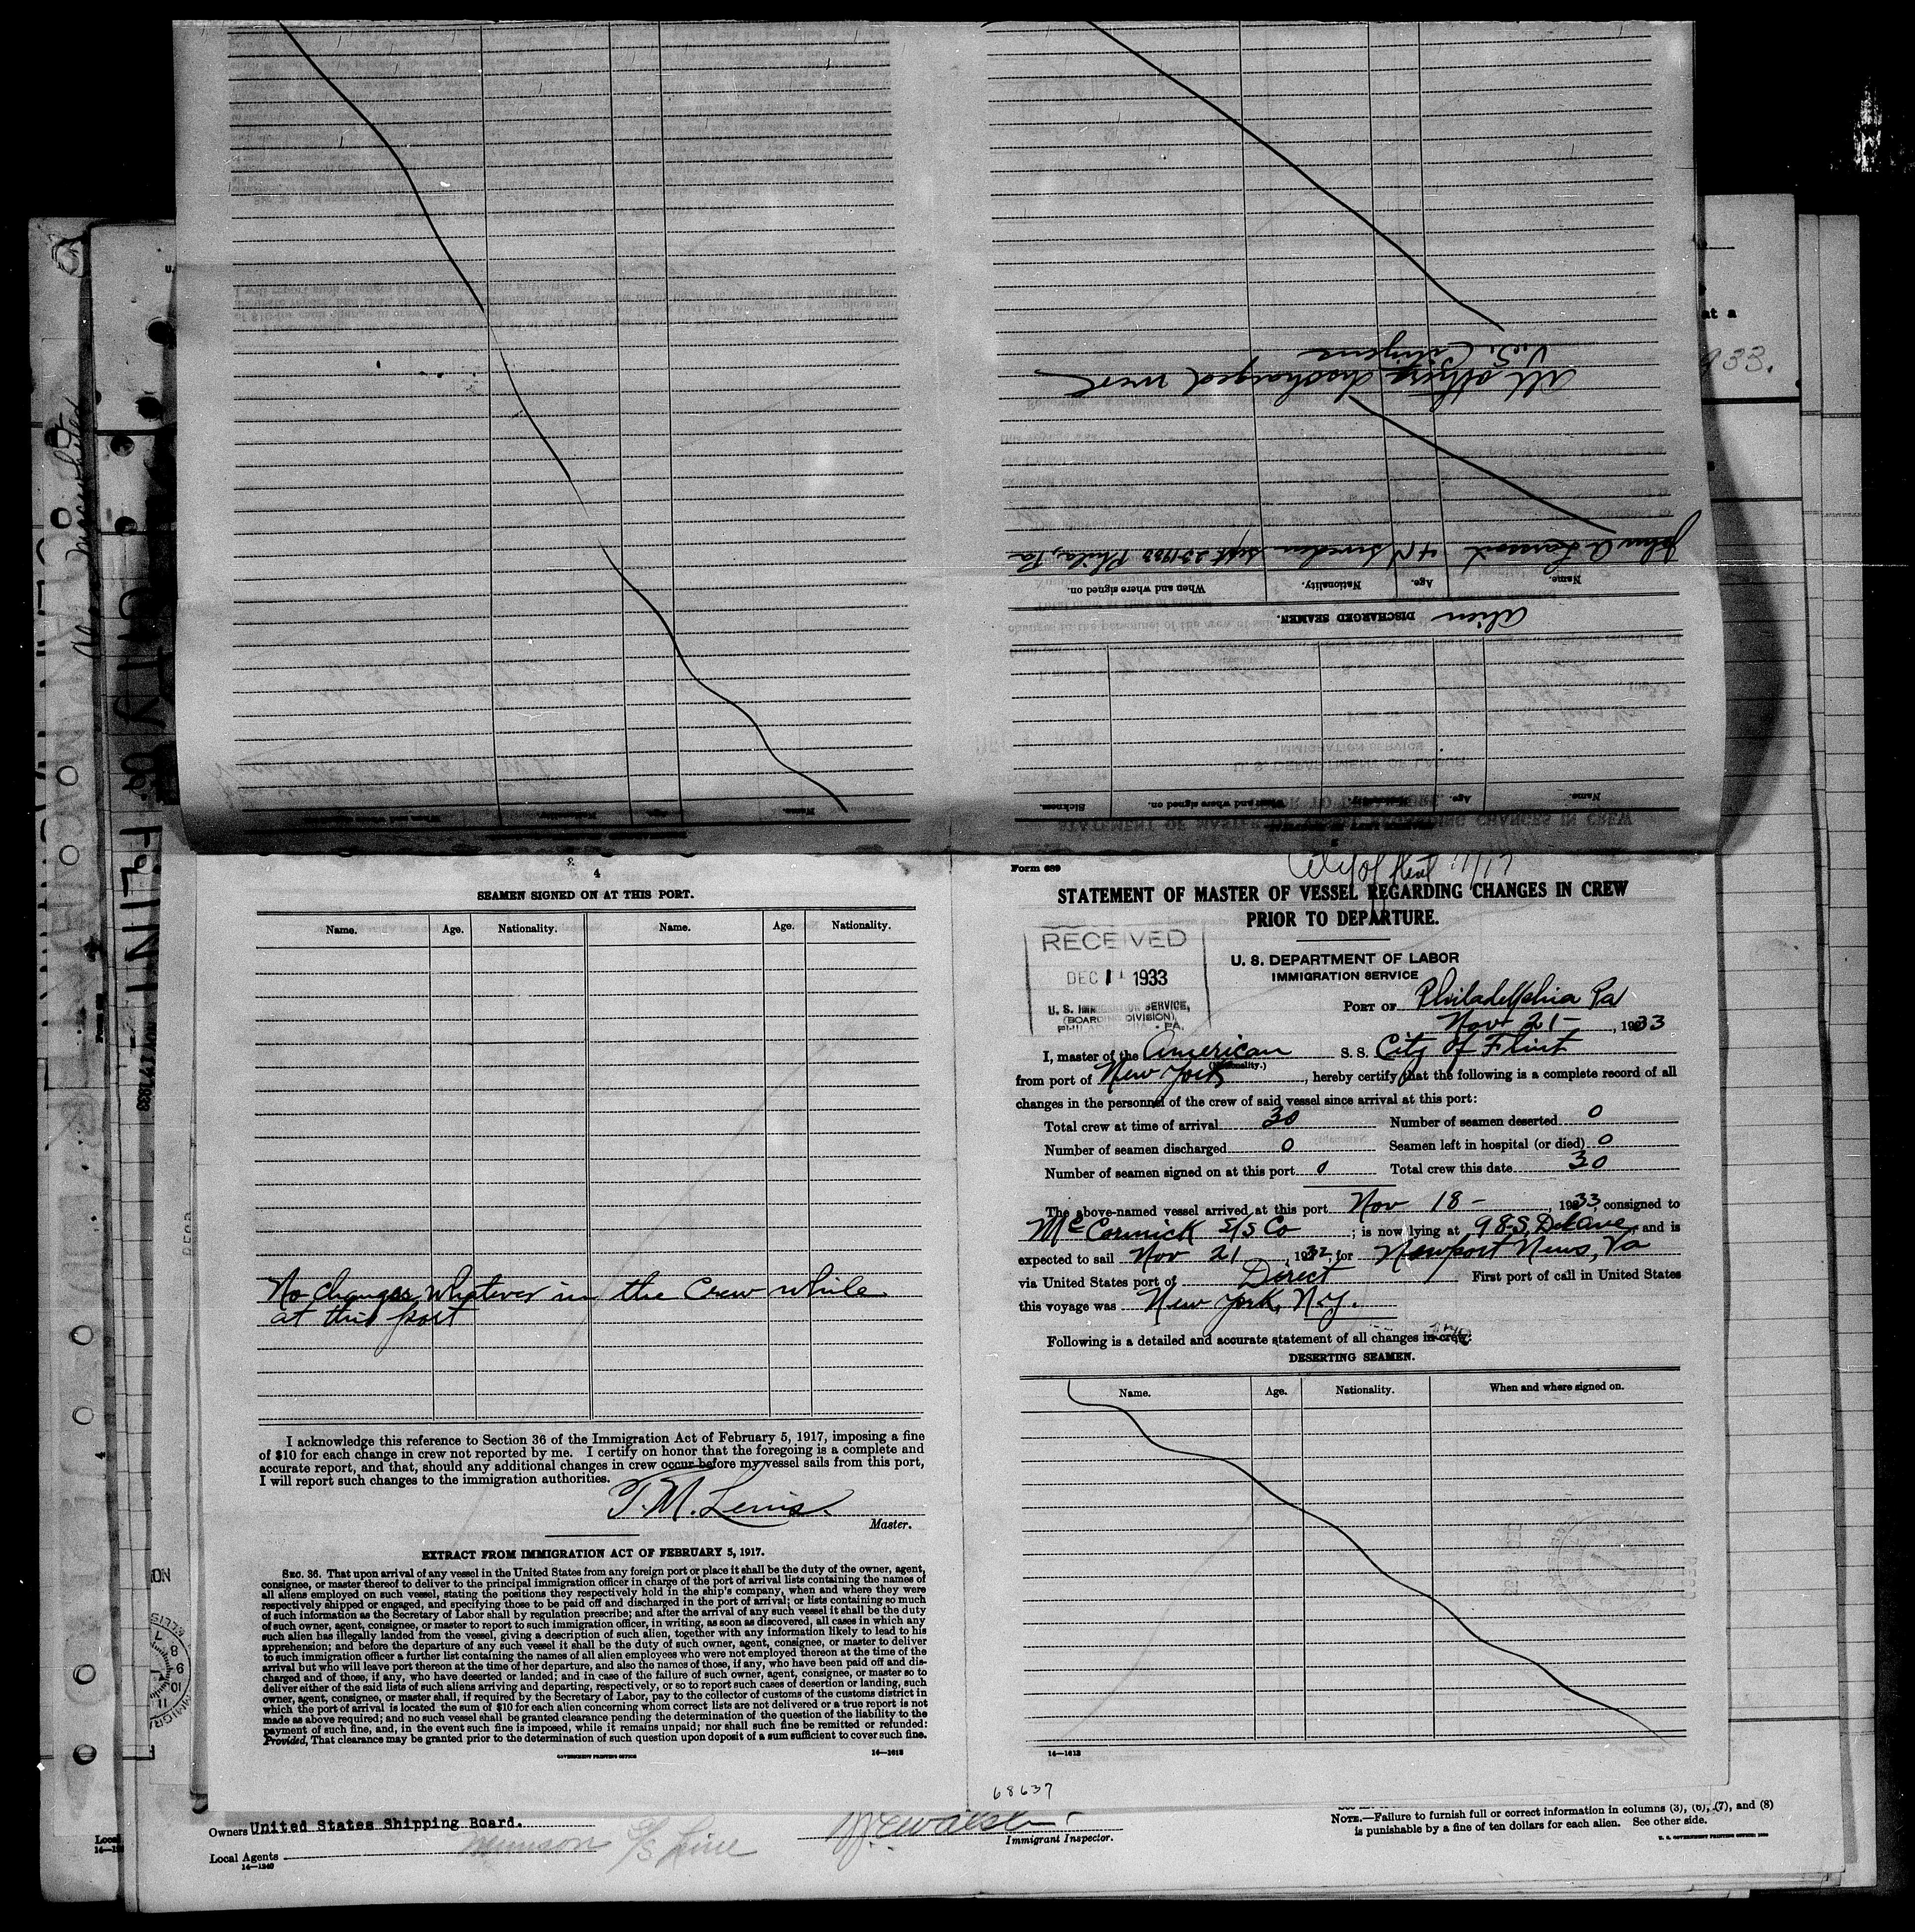 U.S. Citizens
All others discharged were
John A
41 Sweden Sept 23 1933 Phila, Pa
Name.
Age.
Nationality.
When and where signed on.
Alien DISCHARGED SEAMEN.
Name.
Age.
When and where signed on.
Sickness.
at a
933.
CITY OF FLINT
4
SEAMEN SIGNED ON AT THIS PORT.
Name. Age. Nationality. Name. Age. Nationality.
No changes whatever in the Crew while
at this port
I acknowledge this reference to Section 36 of the Immigration Act of February 5, 1917, imposing a fine
of $10 for each change in crew not reported by me. I certify on honor that the foregoing is a complete and
accurate report, and that, should any additional changes in crew occur before my vessel sails from this port,
I will report such changes to the immigration authorities.
T. M. Lewis
Master.
EXTRACT FROM IMMIGRATION ACT OF FEBRUARY 5, 1917.
SEC. 36. That upon arrival of any vessel in the United States from any foreign port or place it shall be the duty of the owner, agent,
consignee, or master thereof to deliver to the principal immigration officer in charge of the port of arrival lists containing the names of
all aliens employed on such vessel, stating the positions they respectively hold in the ship's company, when and where they were
respectively shipped or engaged, and specifying those to be paid off and discharged in the port of arrival; or lists containing so much
of such information as the Secretary of Labor shall by regulation prescribe; and after the arrival of any such vessel it shall be the duty
of such owner, agent, consignee, or master to report to such immigration officer, in writing, as soon as discovered, all cases in which any
such alien has illegally landed from the vessel, giving a description of such alien, together with any information likely to lead to his
apprehension; and before the departure of any such vessel it shall be the duty of such owner, agent, consignee, or master to deliver
to such immigration officer a further list containing the names of all alien employees who were not employed thereon at the time of the
arrival but who will leave port thereon at the time of her departure, and also the names of those, if any, who have been paid off and dis-
charged and of those, if any, who have deserted or landed; and in case of the failure of such owner, agent, consignee, or master so to
deliver either of the said lists of such aliens arriving and departing, respectively, or so to report such cases of desertion or landing, such
owner, agent, consignee, or master shall, if required by the Secretary of Labor, pay to the collector of customs of the customs district in
which the port of arrival is located the sum of $10 for each alien concerning whom correct lists are not delivered or a true report is not
made as above required; and no such vessel shall be granted clearance pending the determination of the question of the liability to the
payment of such fine, and, in the event such fine is imposed, while it remains unpaid; nor shall such fine be remitted or refunded:
Provided, That clearance may be granted prior to the determination of such question upon deposit of a sum sufficient to cover such fine.
GOVERNMENT PRINTING OFFICE 14—1613
Form 689
City of Flint 11/17
STATEMENT OF MASTER OF VESSEL REGARDING CHANGES IN CREW
PRIOR TO DEPARTURE.
RECEIVED
DEC 11 1933
U. S. IMMIGRATION SERVICE,
(BOARDING DIVISION)
PHILADELPHIA - PA.
U. S. DEPARTMENT OF LABOR
IMMIGRATION SERVICE
PORT OF Philadelphia Pa
Nov 21 -, 1933
I, master of the American S. S. City of Flint
(Nationality.)
from port of New York, hereby certify that the following is a complete record of all
changes in the personnel of the crew of said vessel since arrival at this port:
Total crew at time of arrival 30 Number of seamen deserted 0
Number of seamen discharged 0 Seamen left in hospital (or died) 0
Number of seamen signed on at this port 0 Total crew this date 30
The above-named vessel arrived at this port Nov 18 -, 1933, consigned to
McCormick S/S Co; is now lying at 98 S. Del ave, and is
expected to sail Nov 21, 1932, for Newport News, Va
via United States port of Direct First port of call in United States
this voyage was New York, N.Y.
Following is a detailed and accurate statement of all changes in crew:
DESERTING SEAMEN.
Name. Age. Nationality. When and where signed on.
14—1613
68637
Owners United States Shipping Board.
Munson S/S Line
Local Agents
14—1240
Immigrant Inspector.
NOTE.—Failure to furnish full or correct information in columns (3), (6), (7), and (8)
is punishable by a fine of ten dollars for each alien. See other side.